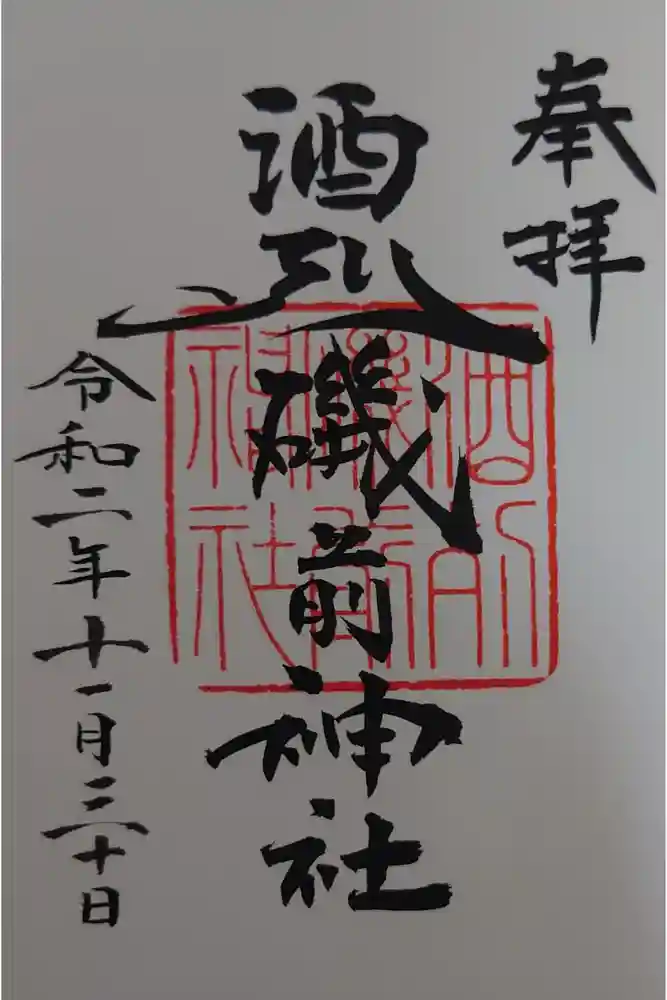 奉拝
酒列磯前神社
酒列
磯前
神社
令和二年十一月三十日